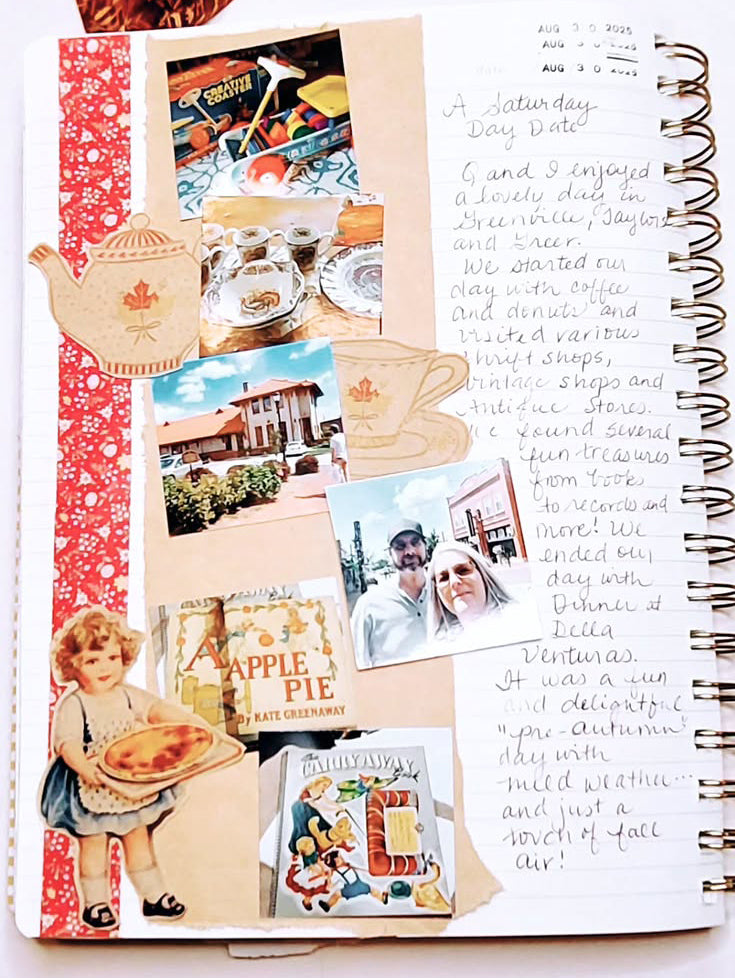 AUG 30 2025
AUG 30 2025
date
AUG 30 2025
A Saturday
Day Date
G and I enjoyed
a lovely day in
Greenville, Taylors
and Greer.
We started our
day with coffee
and donuts and
visited various
thrift shops,
vintage shops and
Antique Stores.
We found several
fun treasures
from books
to records and
more! We
ended our
day with
Dinner at
Della
Venturas.
It was a fun
and delightful
"pre-autumn"
day with
mild weather...
and just a
touch of fall
air!
CREATIVE
COASTER
A
APPLE
PIE
By KATE GREENAWAY
The
CARRY AWAY
Book